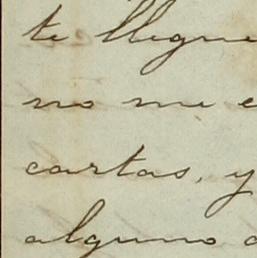 te llegue
no me c
cartas, y
alguno a